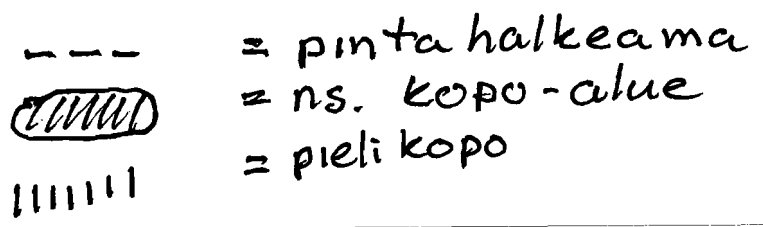 = pintahalkeama
= ns. kopo-alue
= pieli kopo